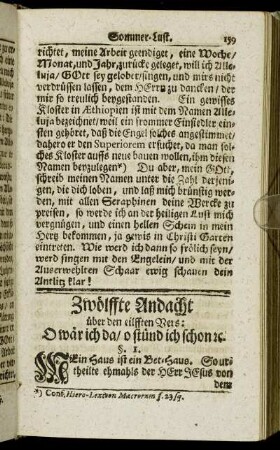 Sommer-Lust. 159
richtet, meine Arbeit geendiget, eine Woche/
Monat, und Jahr, zurücke geleget, will ich Alle-
luja/ GOtt sey gelobet/singen, und mirs nicht
verdrüssen lassen, dem HErrn zu dancken/ der
mir so treulich beygestanden. Ein gewisses
Kloster in Æthiopien ist mit dem Namen Allelu-
ja bezeichnet/ weil ein frommer Einsiedler ein-
sten gehöret, daß die Engel solches angestimmet/
dahero er den Superiorem ersuchet, da man sol-
ches Kloster auffs neue bauen wollen, ihm diesen
Namen beyzulegen*) Du aber, mein GOtt,
schreib meinen Namen unter die Zahl derjeni-
gen, die dich loben, und laß mich brünstig wer-
den, mit allen Seraphinen deine Wercke zu
preisen, so werde ich an der heiligen Lust mich
vergnügen, und einen hellen Schein in mein
Hertz bekommen, ja gewis in Christi Garten
eintreten. Wie werd ich dann so frölich seyn/
werd singen mit den Engelein/ und mit der
Auserwehlten Schaar ewig schauen dein
Antlitz klar!
Zwölffte Andacht
über den eilfften Vers:
O wär ich da/ o stünd ich schon ꝛc.
§. 1.
MEin Haus ist ein Bet-Haus. So ur-
theilte ehmahls der HErr JEsus von
dem
*) Conf. Hiero-Lexicon Macrorum f. 23/s.